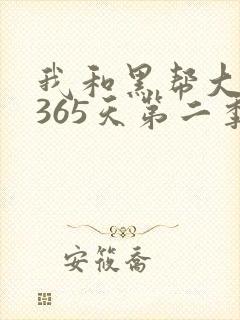 我和黑帮大
365天第二季
安筱乔